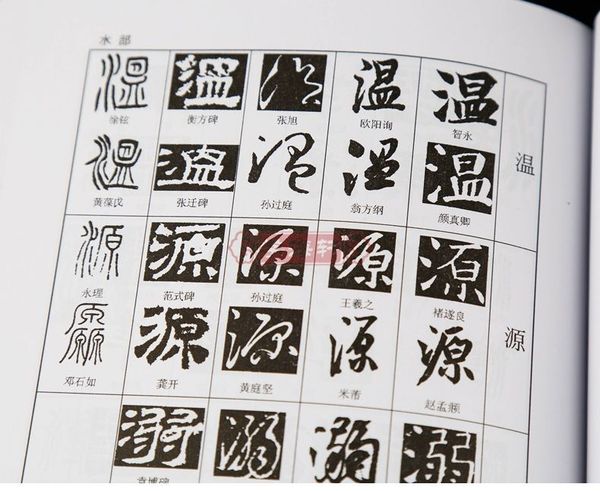 水部
温 温 温 温 温
徐铉 衡方碑 张旭 欧阳询 智永
温
温 温 温 温 温
黄葆戉 张迁碑 孙过庭 翁方纲 颜真卿
源 源 源 源 源
永瑆 范式碑 孙过庭 王羲之 褚遂良
源
源 源 源 源 源
邓石如 龚开 黄庭坚 米芾 赵孟頫
溺 溺 溺 溺
袁博碑